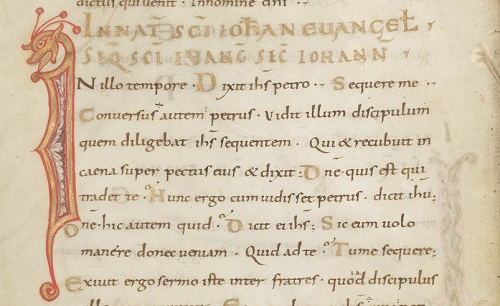 dictus qui venit · In nomine dni ·
IN NAT̄ SC̄I IOHAN EVANGEL
SEQ̄ SC̄I EVANḠ SEC̄ IOHANN̄
IN illo tempore · Dixit ih̄s petro · Sequere me ·
Conversus autem petrus · vidit illum discipulum
quem diligebat ih̄s sequentem · Qui & recubuit in
caena super pectus eius & dixit · Dne quis est qui
tradet te · Hunc ergo cum vidisset petrus · dicit ihū ·
Dne · hic autem quid · Dicit ei ih̄s · Sic eum volo
manere donec veniam · Quid ad te · Tu me sequere ·
Exivit ergo sermo iste inter fratres · quod discipulus